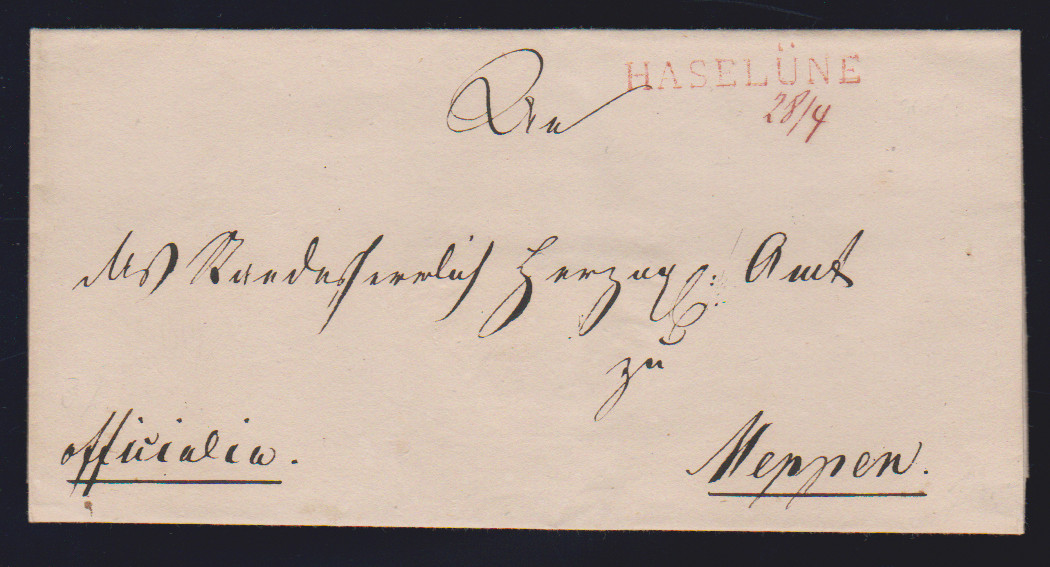 HASELÜNE
28/4
An
das Standesherrlich Herzogl: Amt
zu
Meppen.
officialia.